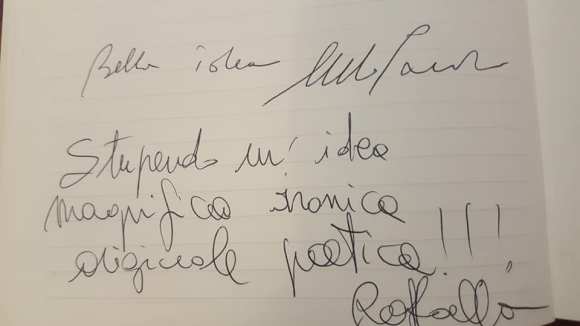 Bella idea
Stupendo un' idea
magnifica ironica
originale poetica!!!
Raffaella